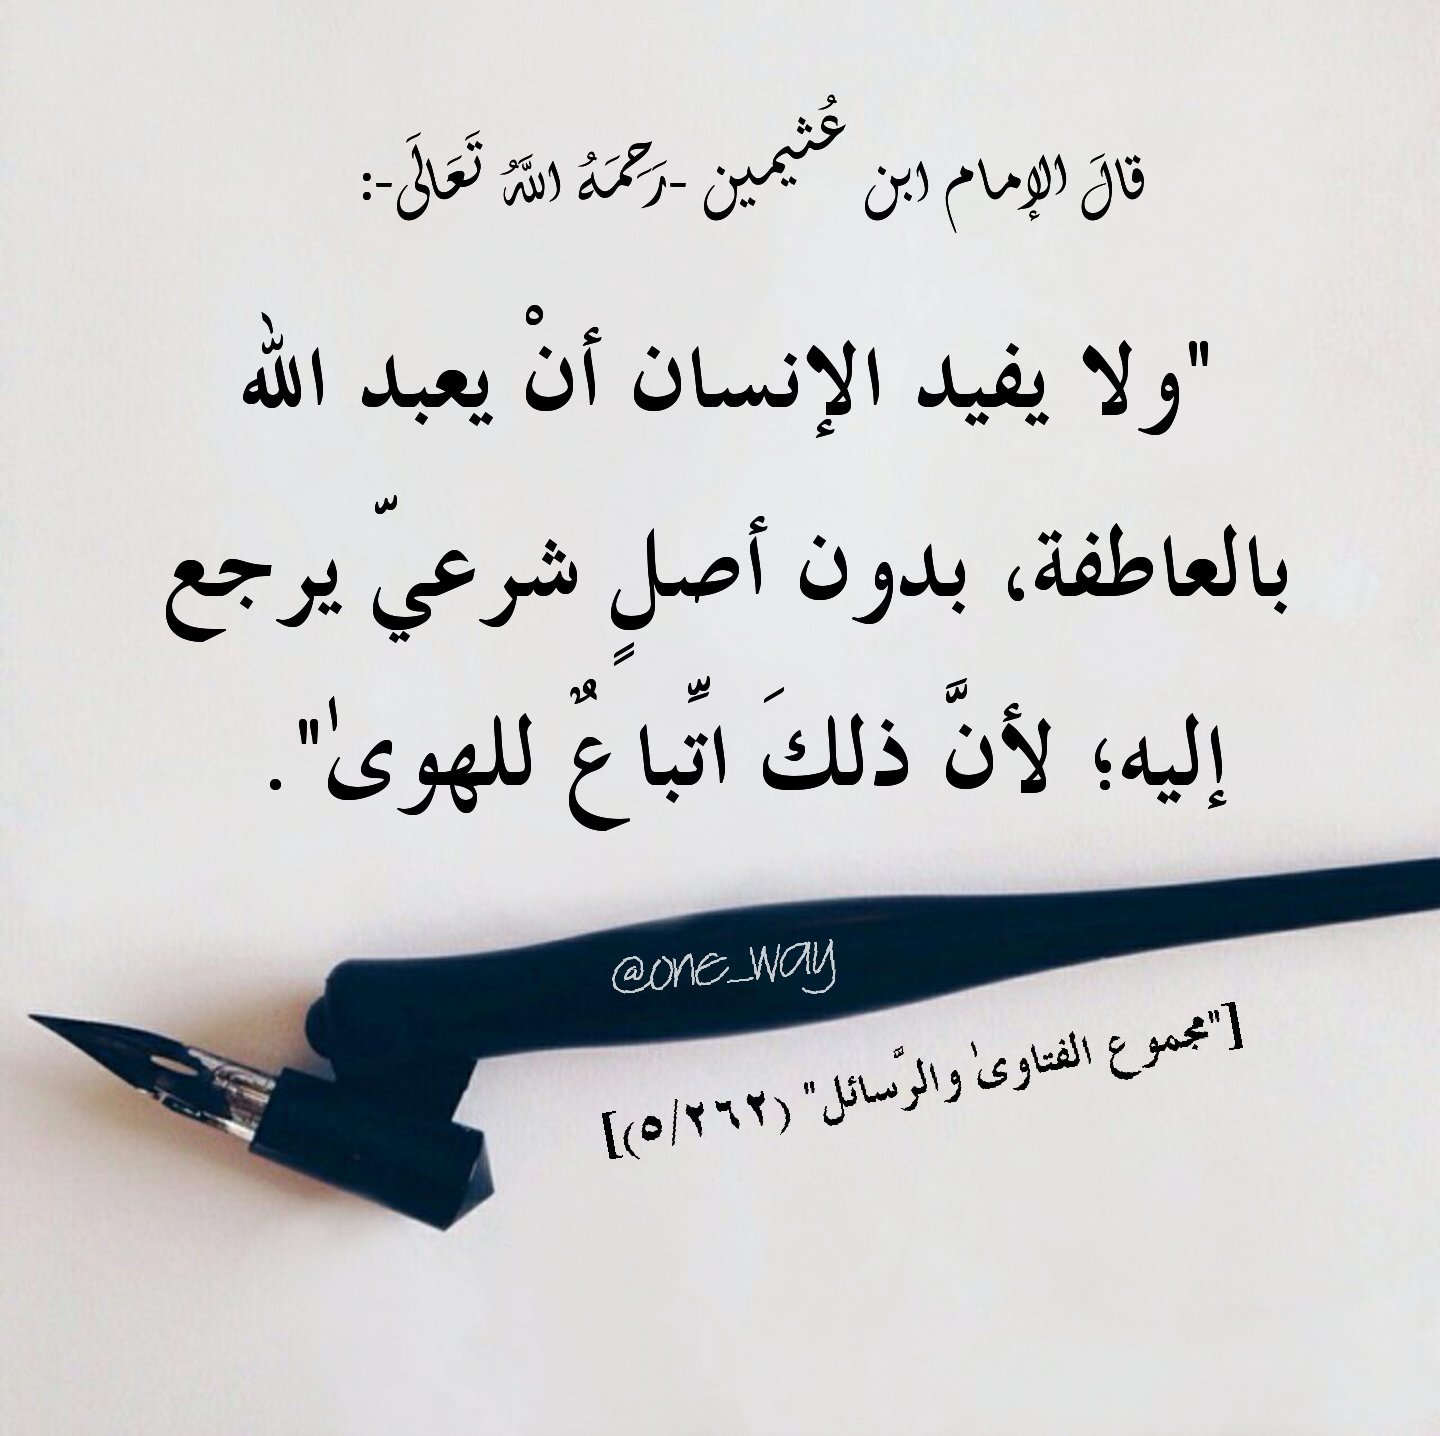 قالَ الإمام ابن عُثيمين -رَحِمَهُ اللَّهُ تَعَالَى-:
"ولا يفيد الإنسان أنْ يعبد الله
بالعاطفة، بدون أصلٍ شرعيّ يرجع
إليه؛ لأنَّ ذلكَ اتِّباعٌ للهوىٰ".
@one_way
["مجموع الفتاوىٰ والرَّسائل" (٥/٢٦٢)]